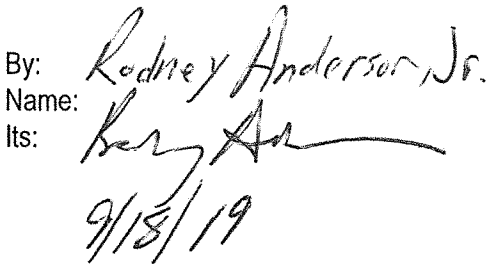 By: Rodney Anderson, Jr.
Name:
Its:
9/18/19